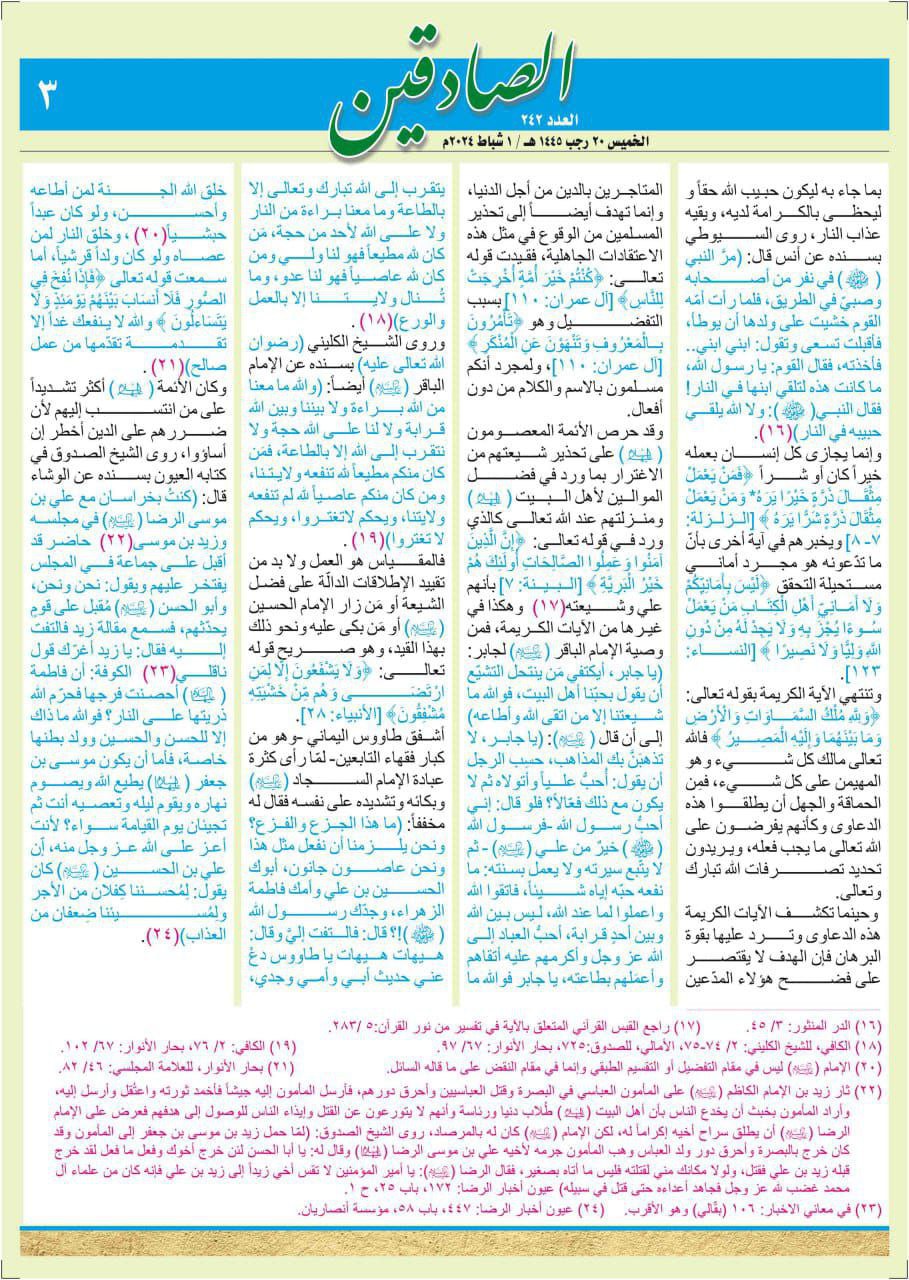 الصادقين
العدد ٢٤٢
٣
الخميس ٢٠ رجب ١٤٤٥ هـ / ١ شباط ٢٠٢٤م
بما جاء به ليكون حبيب الله حقاً و
ليحظى بالكرامة لديه، ويقيه
عذاب النار، روى السيوطي
بسنده عن أنس قال: (مرّ النبي
(ﷺ) في نفر من أصحابه
وصبيّ في الطريق، فلما رأت أمّه
القوم خشيت على ولدها أن يوطأ،
فأقبلت تسعى وتقول: ابني ابني..
فأخذته، فقال القوم: يا رسول الله،
ما كانت هذه لتلقي ابنها في النار!
فقال النبي(ﷺ): ولا الله يلقي
حبيبه في النار)(١٦).
وإنما يجازى كل إنسان بعمله
خيراً كان أو شراً ﴿فَمَنْ يَعْمَلْ
مِثْقَالَ ذَرَّةٍ خَيْرًا يَرَهُ* وَمَنْ يَعْمَلْ
مِثْقَالَ ذَرَّةٍ شَرًّا يَرَهُ﴾ [الزلزلة:
٧- ٨] ويخبرهم في آية أخرى بأنّ
ما تدّعونه هو مجرد أماني
مستحيلة التحقق ﴿لَيْسَ بِأَمَانِيِّكُمْ
وَلَا أَمَانِيِّ أَهْلِ الْكِتَابِ مَنْ يَعْمَلْ
سُوءًا يُجْزَ بِهِ وَلَا يَجِدْ لَهُ مِنْ دُونِ
اللَّهِ وَلِيًّا وَلَا نَصِيرًا﴾ [النساء:
١٢٣].
وتنتهي الآية الكريمة بقوله تعالى:
﴿وَلِلَّهِ مُلْكُ السَّمَاوَاتِ وَالْأَرْضِ
وَمَا بَيْنَهُمَا وَإِلَيْهِ الْمَصِيرُ﴾ فالله
تعالى مالك كل شيء وهو
المهيمن على كل شيء، فمن
الحماقة والجهل أن يطلقوا هذه
الدعاوى وكأنهم يفرضون على
الله تعالى ما يجب فعله، ويريدون
تحديد تصرفات الله تبارك
وتعالى.
وحينما تكشف الآيات الكريمة
هذه الدعاوى وترد عليها بقوة
البرهان فإن الهدف لا يقتصر
على فضح هؤلاء المدّعين
المتاجرين بالدين من أجل الدنيا،
وإنما تهدف أيضاً إلى تحذير
المسلمين من الوقوع في مثل هذه
الاعتقادات الجاهلية، فقيدت قوله
تعالى: ﴿كُنْتُمْ خَيْرَ أُمَّةٍ أُخْرِجَتْ
لِلنَّاسِ﴾ [آل عمران: ١١٠] بسبب
التفضيل وهو ﴿تَأْمُرُونَ
بِالْمَعْرُوفِ وَتَنْهَوْنَ عَنِ الْمُنْكَرِ﴾
[آل عمران: ١١٠]، ولمجرد أنكم
مسلمون بالاسم والكلام من دون
أفعال.
وقد حرص الأئمة المعصومون
(عليهم السلام) على تحذير شيعتهم من
الاغترار بما ورد في فضل
الموالين لأهل البيت (عليهم السلام)
ومنزلتهم عند الله تعالى كالذي
ورد في قوله تعالى: ﴿إِنَّ الَّذِينَ
آمَنُوا وَعَمِلُوا الصَّالِحَاتِ أُولَئِكَ هُمْ
خَيْرُ الْبَرِيَّةِ﴾ [البينة: ٧] بأنهم
علي وشيعته(١٧) وهكذا في
غيرها من الآيات الكريمة، فمن
وصية الإمام الباقر (عليه السلام) لجابر:
(يا جابر، أيكتفي مَن ينتحل التشيّع
أن يقول بحبّنا أهل البيت، فوالله ما
شيعتنا إلا من اتقى الله وأطاعه)
إلى أن قال (عليه السلام): (يا جابر، لا
تذهبنّ بك المذاهب، حسب الرجل
أن يقول: أُحبُّ علياً وأتولاه ثم لا
يكون مع ذلك فعّالاً؟ فلو قال: إني
أحبُّ رسول الله -فرسول الله
(ﷺ) خيرٌ من علي (عليه السلام)- ثم
لا يتّبع سيرته ولا يعمل بسنته: ما
نفعه حبّه إياه شيئاً، فاتقوا الله
واعملوا لما عند الله، ليس بين الله
وبين أحدٍ قرابة، أحبُّ العباد إلى
الله عز وجل وأكرمهم عليه أتقاهم
وأعمَلهم بطاعته، يا جابر فوالله ما
يتقرب إلى الله تبارك وتعالى إلا
بالطاعة وما معنا براءة من النار
ولا على الله لأحد من حجة، مَن
كان لله مطيعاً فهو لنا ولي ومن
كان لله عاصياً فهو لنا عدو، وما
تُنال ولايتنا إلا بالعمل
والورع)(١٨).
وروى الشيخ الكليني (رضوان
الله تعالى عليه) بسنده عن الإمام
الباقر (عليه السلام) أيضاً: (والله ما معنا
من الله براءة ولا بيننا وبين الله
قرابة ولا لنا على الله حجة ولا
نتقرب إلى الله إلا بالطاعة، فمَن
كان منكم مطيعاً لله تنفعه ولايتنا،
ومن كان منكم عاصياً لله لم تنفعه
ولايتنا، ويحكم لاتغتروا، ويحكم
لا تغتروا)(١٩).
فالمقياس هو العمل ولا بد من
تقييد الإطلاقات الدالّة على فضل
الشيعة أو مَن زار الإمام الحسين
(عليه السلام) أو مَن بكى عليه ونحو ذلك
بهذا القيد، وهو صريح قوله
تعالى: ﴿وَلَا يَشْفَعُونَ إِلَّا لِمَنِ
ارْتَضَى وَهُم مِّنْ خَشْيَتِهِ
مُشْفِقُونَ﴾ [الأنبياء: ٢٨].
أشفق طاووس اليماني -وهو من
كبار فقهاء التابعين- لمّا رأى كثرة
عبادة الإمام السجاد (عليه السلام)
وبكائه وتشديده على نفسه فقال له
مخففاً: (ما هذا الجزع والفزع؟
ونحن يلزمنا أن نفعل مثل هذا
ونحن عاصون جانون، أبوك
الحسين بن علي وأمك فاطمة
الزهراء، وجدّك رسول الله
(ﷺ)!؟ قال: فالتفت إليَّ وقال:
هيهات هيهات يا طاووس دعْ
عني حديث أبي وأمي وجدي،
خلق الله الجنة لمن أطاعه
وأحسن، ولو كان عبداً
حبشياً(٢٠)، وخلق النار لمن
عصاه ولو كان ولداً قرشياً، أما
سمعت قوله تعالى ﴿فَإِذَا نُفِخَ فِي
الصُّورِ فَلَا أَنسَابَ بَيْنَهُمْ يَوْمَئِذٍ وَلَا
يَتَسَاءلُونَ﴾ والله لا ينفعك غداً إلا
تقدمة تقدّمها من عمل
صالح)(٢١).
وكان الأئمة (عليهم السلام) أكثر تشديداً
على من انتسب إليهم لأن
ضررهم على الدين أخطر إن
أساؤوا، روى الشيخ الصدوق في
كتابه العيون بسنده عن الوشاء
قال: (كنتُ بخراسان مع علي بن
موسى الرضا (عليه السلام) في مجلسه
وزيد بن موسى(٢٢) حاضر قد
أقبل على جماعة في المجلس
يفتخر عليهم ويقول: نحن ونحن،
وأبو الحسن (عليه السلام) مُقبل على قوم
يحدّثهم، فسمع مقالة زيد فالتفت
إليه فقال: يا زيد أغرّك قول
ناقلي(٢٣) الكوفة: أن فاطمة
(عليها السلام) أحصنت فرجها فحرّم الله
ذريتها على النار؟ فوالله ما ذاك
إلا للحسن والحسين وولد بطنها
خاصة، فأما أن يكون موسى بن
جعفر (عليهما السلام) يطيع الله ويصوم
نهاره ويقوم ليله وتعصيه أنت ثم
تجيئان يوم القيامة سواء؟ لأنت
أعز على الله عز وجل منه، إن
علي بن الحسين (عليه السلام) كان
يقول: لِمُحسننا كفلان من الأجر
ولمُسيئنا ضِعفان من
العذاب)(٢٤).
(١٦) الدر المنثور: ٣/ ٤٥. (١٧) راجع القبس القرآني المتعلق بالآية في تفسير من نور القرآن: ٥/ ٢٨٣.
(١٨) الكافي، للشيخ الكليني: ٢/ ٧٤-٧٥، الأمالي، للصدوق: ٧٢٥، بحار الأنوار: ٦٧/ ٩٧. (١٩) الكافي: ٢/ ٧٦، بحار الأنوار: ٦٧/ ١٠٢.
(٢٠) الإمام (عليه السلام) ليس في مقام التفضيل أو التقسيم الطبقي وإنما في مقام النقض على ما قاله السائل. (٢١) بحار الأنوار، للعلامة المجلسي: ٤٦/ ٨٢.
(٢٢) ثار زيد بن الإمام الكاظم (عليه السلام) على المأمون العباسي في البصرة وقتل العباسيين وأحرق دورهم، فأرسل المأمون إليه جيشاً فأخمد ثورته واعتُقل وأرسل إليه،
وأراد المأمون بخبث أن يخدع الناس بأن أهل البيت (عليهم السلام) طُلاب دنيا ورئاسة وأنهم لا يتورعون عن القتل وإيذاء الناس للوصول إلى هدفهم فعرض على الإمام
الرضا (عليه السلام) أن يطلق سراح أخيه إكراماً له، لكن الإمام (عليه السلام) كان له بالمرصاد، روى الشيخ الصدوق: (لمّا حمل زيد بن موسى بن جعفر إلى المأمون وقد
كان خرج بالبصرة وأحرق دور ولد العباس وهب المأمون جرمه لأخيه علي بن موسى الرضا (عليهما السلام) وقال له: يا أبا الحسن لئن خرج أخوك وفعل ما فعل لقد خرج
قبله زيد بن علي فقتل، ولولا مكانك مني لقتلته فليس ما أتاه بصغير، فقال الرضا (عليه السلام): يا أمير المؤمنين لا تقس أخي زيداً إلى زيد بن علي فإنه كان من علماء آل
محمد غضب لله عز وجل فجاهد أعداءه حتى قتل في سبيله) عيون أخبار الرضا: ١٧٢، باب ٢٥، ح ١.
(٢٣) في معاني الاخبار: ١٠٦ (بقّالي) وهو الأقرب. (٢٤) عيون أخبار الرضا: ٤٤٧، باب ٥٨، مؤسسة أنصاريان.